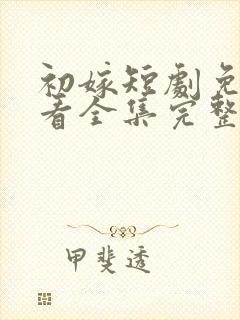 初嫁短劇免
看全集完整
甲斐透